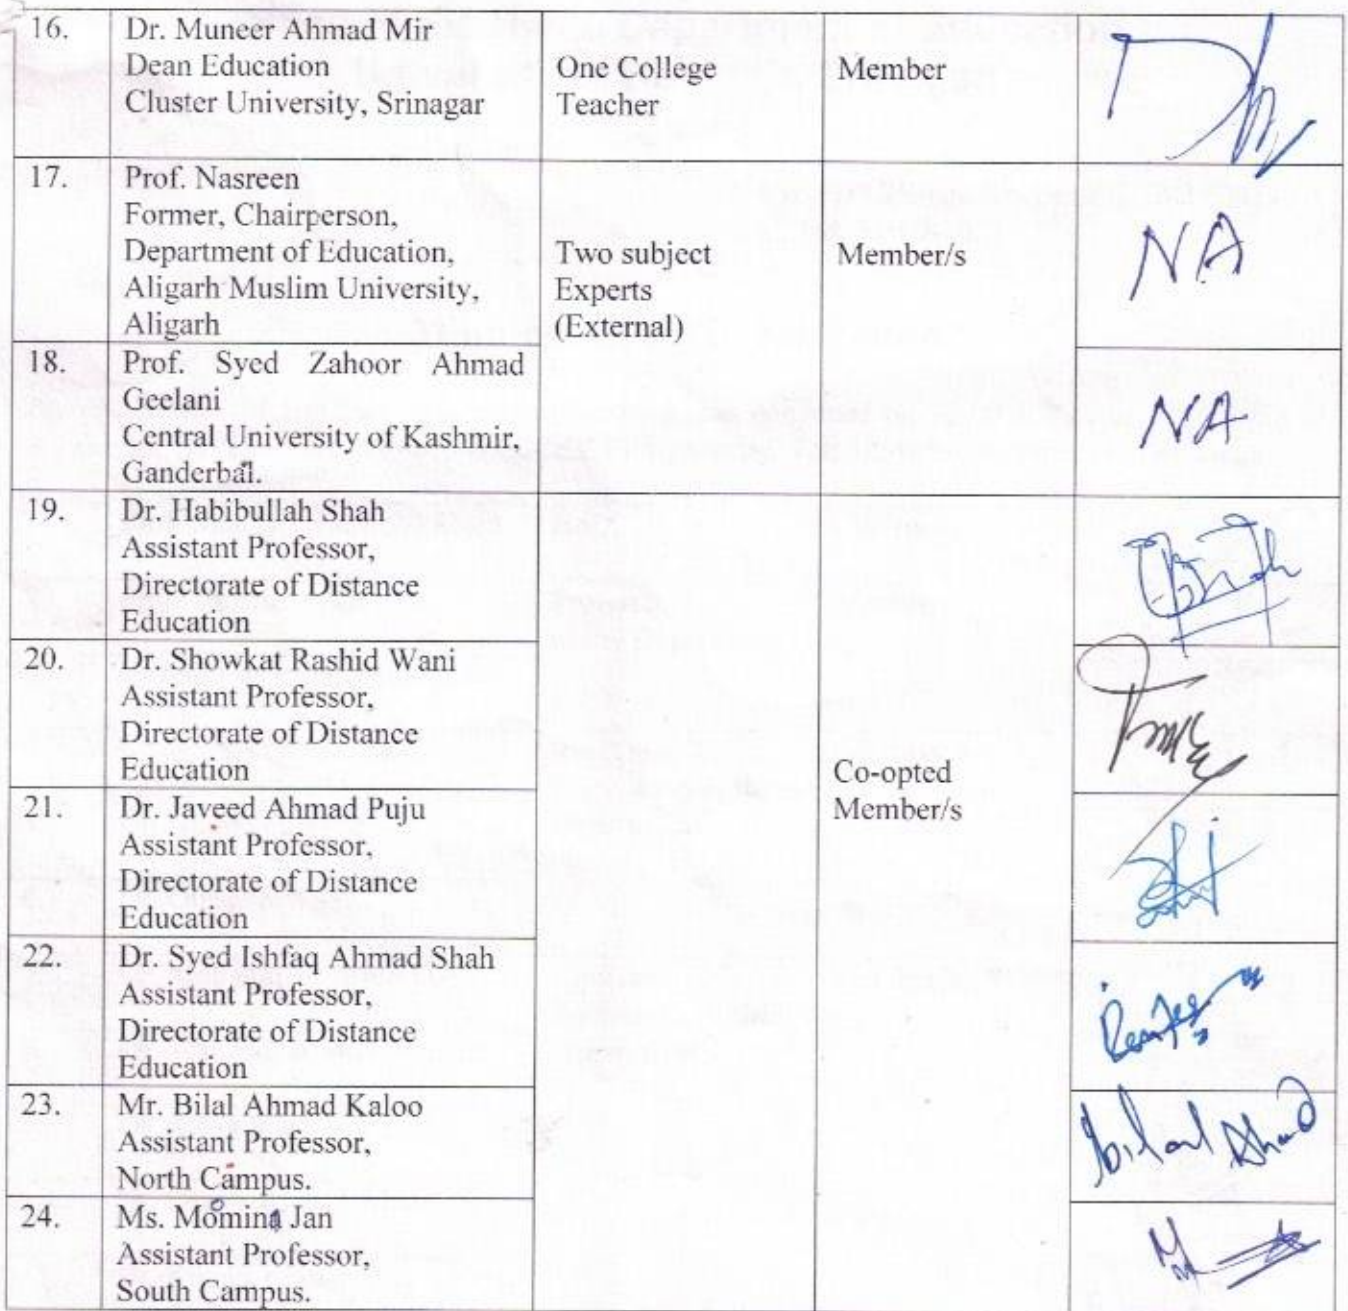 16.
Dr. Muneer Ahmad Mir
Dean Education
Cluster University, Srinagar
One College
Teacher
Member
17.
Prof. Nasreen
Former, Chairperson,
Department of Education,
Aligarh Muslim University,
Aligarh
Two subject
Experts
(External)
Member/s
NA
18.
Prof. Syed Zahoor Ahmad
Geelani
Central University of Kashmir,
Ganderbal.
NA
19.
Dr. Habibullah Shah
Assistant Professor,
Directorate of Distance
Education
20.
Dr. Showkat Rashid Wani
Assistant Professor,
Directorate of Distance
Education
Co-opted
Member/s
21.
Dr. Javeed Ahmad Puju
Assistant Professor,
Directorate of Distance
Education
22.
Dr. Syed Ishfaq Ahmad Shah
Assistant Professor,
Directorate of Distance
Education
23.
Mr. Bilal Ahmad Kaloo
Assistant Professor,
North Campus.
Bilal Ahmad
24.
Ms. Momina Jan
Assistant Professor,
South Campus.